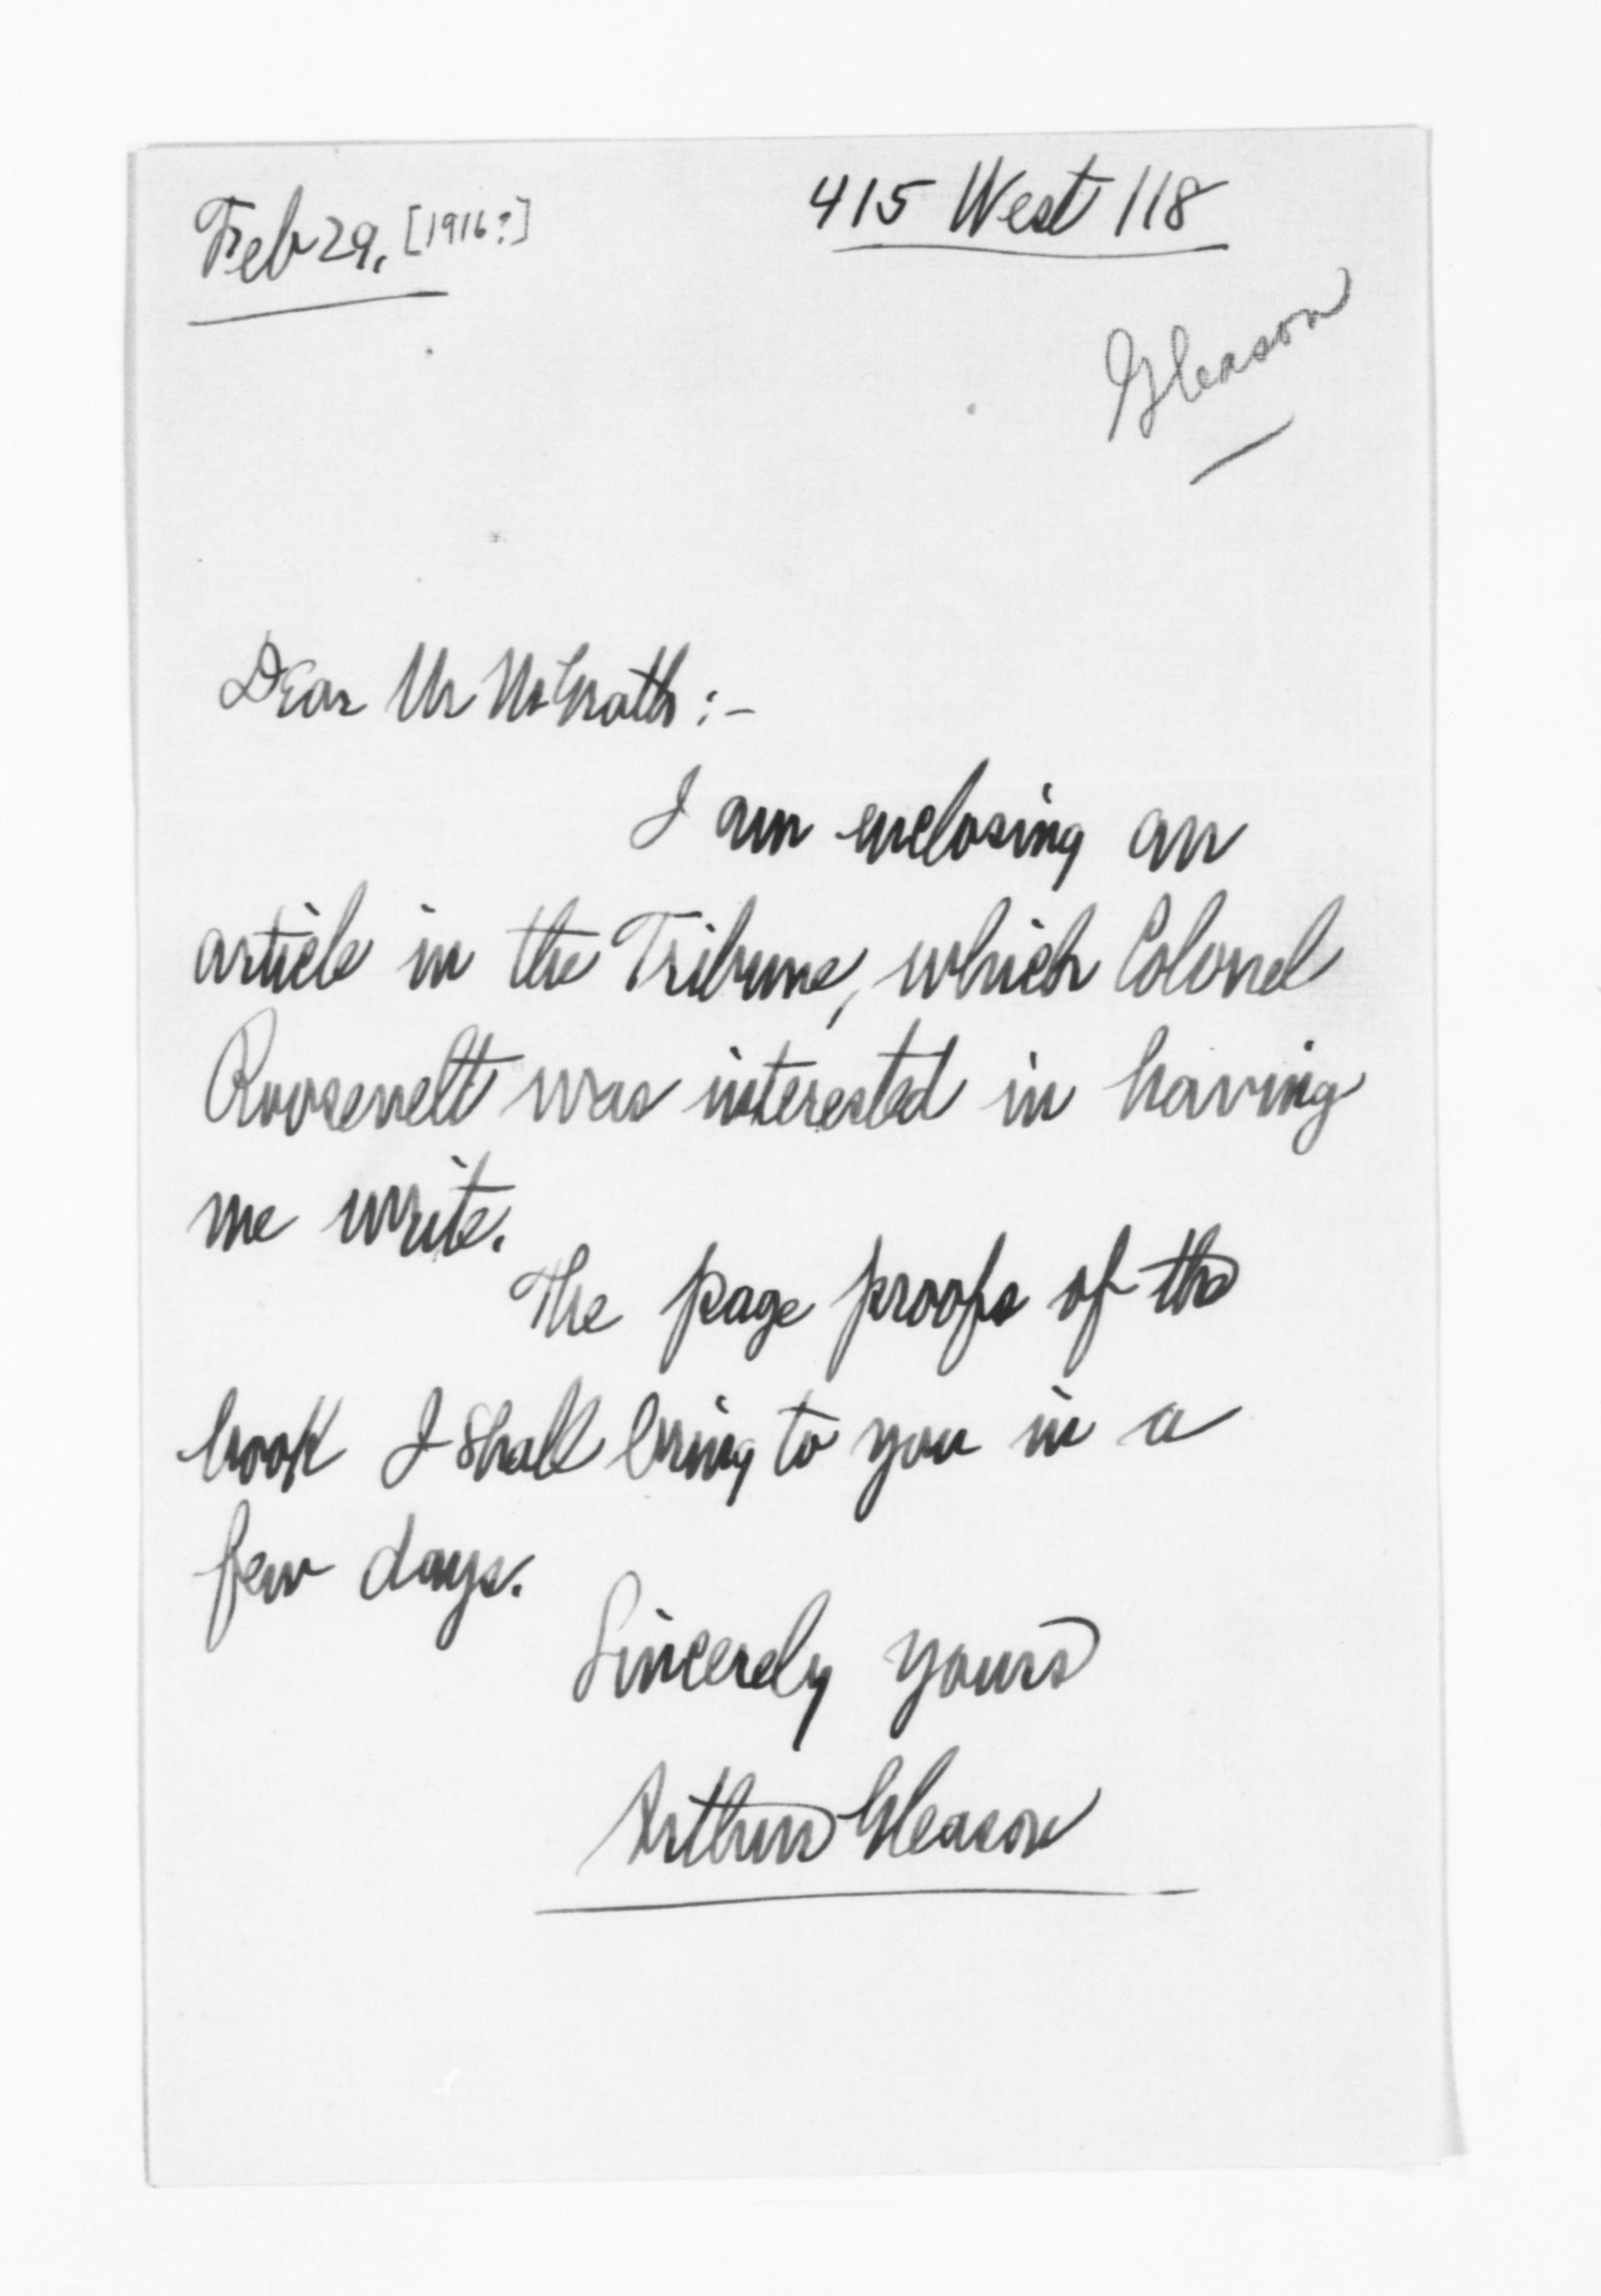 Feb 29, [1916?]
415 West 118
Gleason
Dear Mr McGrath:-
I am enclosing an
article in the Tribune, which Colonel
Roosevelt was interested in having
me write.
The page proofs of the
book I shall bring to you in a
few days.
Sincerely yours
Arthur Gleason